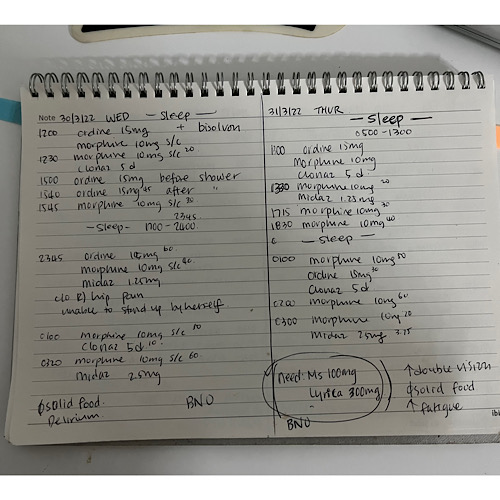 Note 30/3/22 WED — Sleep —
1200 ordine 15mg + bisolvon
morphine 10mg s/c
1230 morphine 10mg s/c 20
clonaz 5d
1500 ordine 15mg before shower
1540 ordine 15mg 45 after "
1545 morphine 10mg s/c 30
2345
— Sleep - 1700 - 2400
2345 ordine 15mg 60
morphine 10mg s/c 40
midaz 1.25mg
c/o R) hip pain
unable to stand up by herself
0100 morphine 10mg s/c 50
clonaz 5d
0320 morphine 10mg s/c 60
midaz 2.5mg
solid food
Delirium
BNO
31/3/22 THUR
— Sleep —
0500 - 1300
1300 ordine 15mg
morphine 10mg
clonaz 5d
1330 morphine 10mg 20
midaz 1.25mg
1715 morphine 10mg 30
1830 morphine 10mg 40
— Sleep —
0100 morphine 10mg 50
ordine 15mg 30
clonaz 5d
0200 morphine 10mg 60
0300 morphine 10mg 70
midaz 2.5mg 3.75
need: Ms 100mg
Lyrica 300mg
BNO
↑ double vision
solid food
↑ fatigue